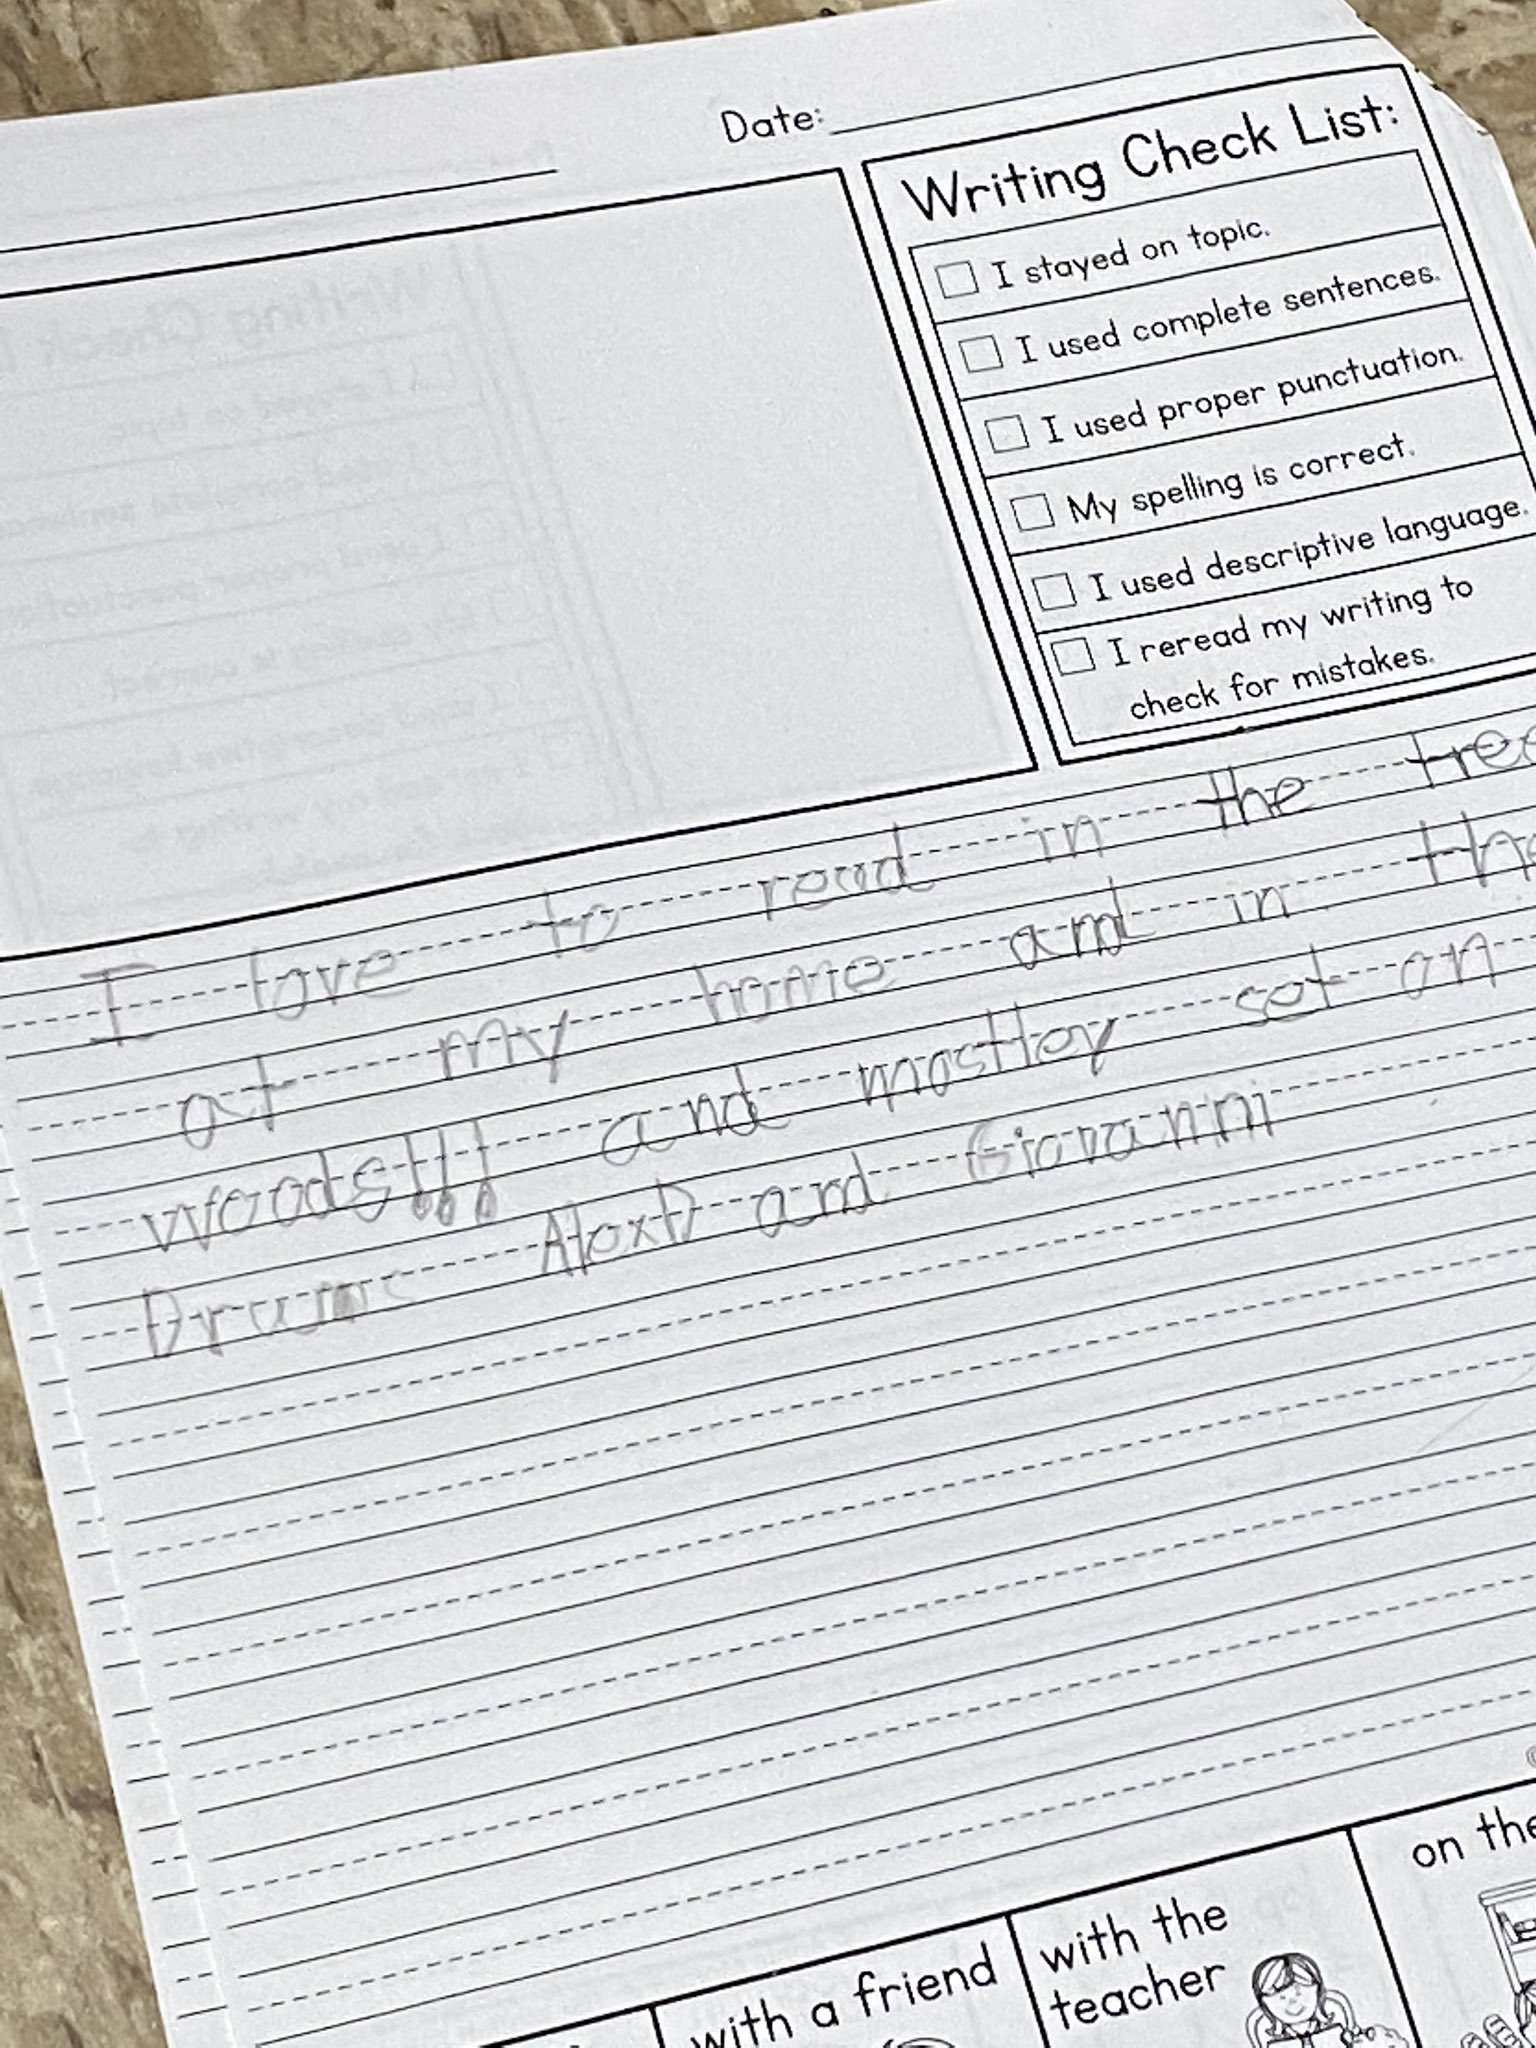 Date:
Writing Check List:
I stayed on topic.
I used complete sentences.
I used proper punctuation.
My spelling is correct.
I used descriptive language.
I reread my writing to
check for mistakes.
I love to read in the tree
at my home and in the
woods!!! and mostley set on
AlexD and Giovanni
with a friend
with the
teacher
on the